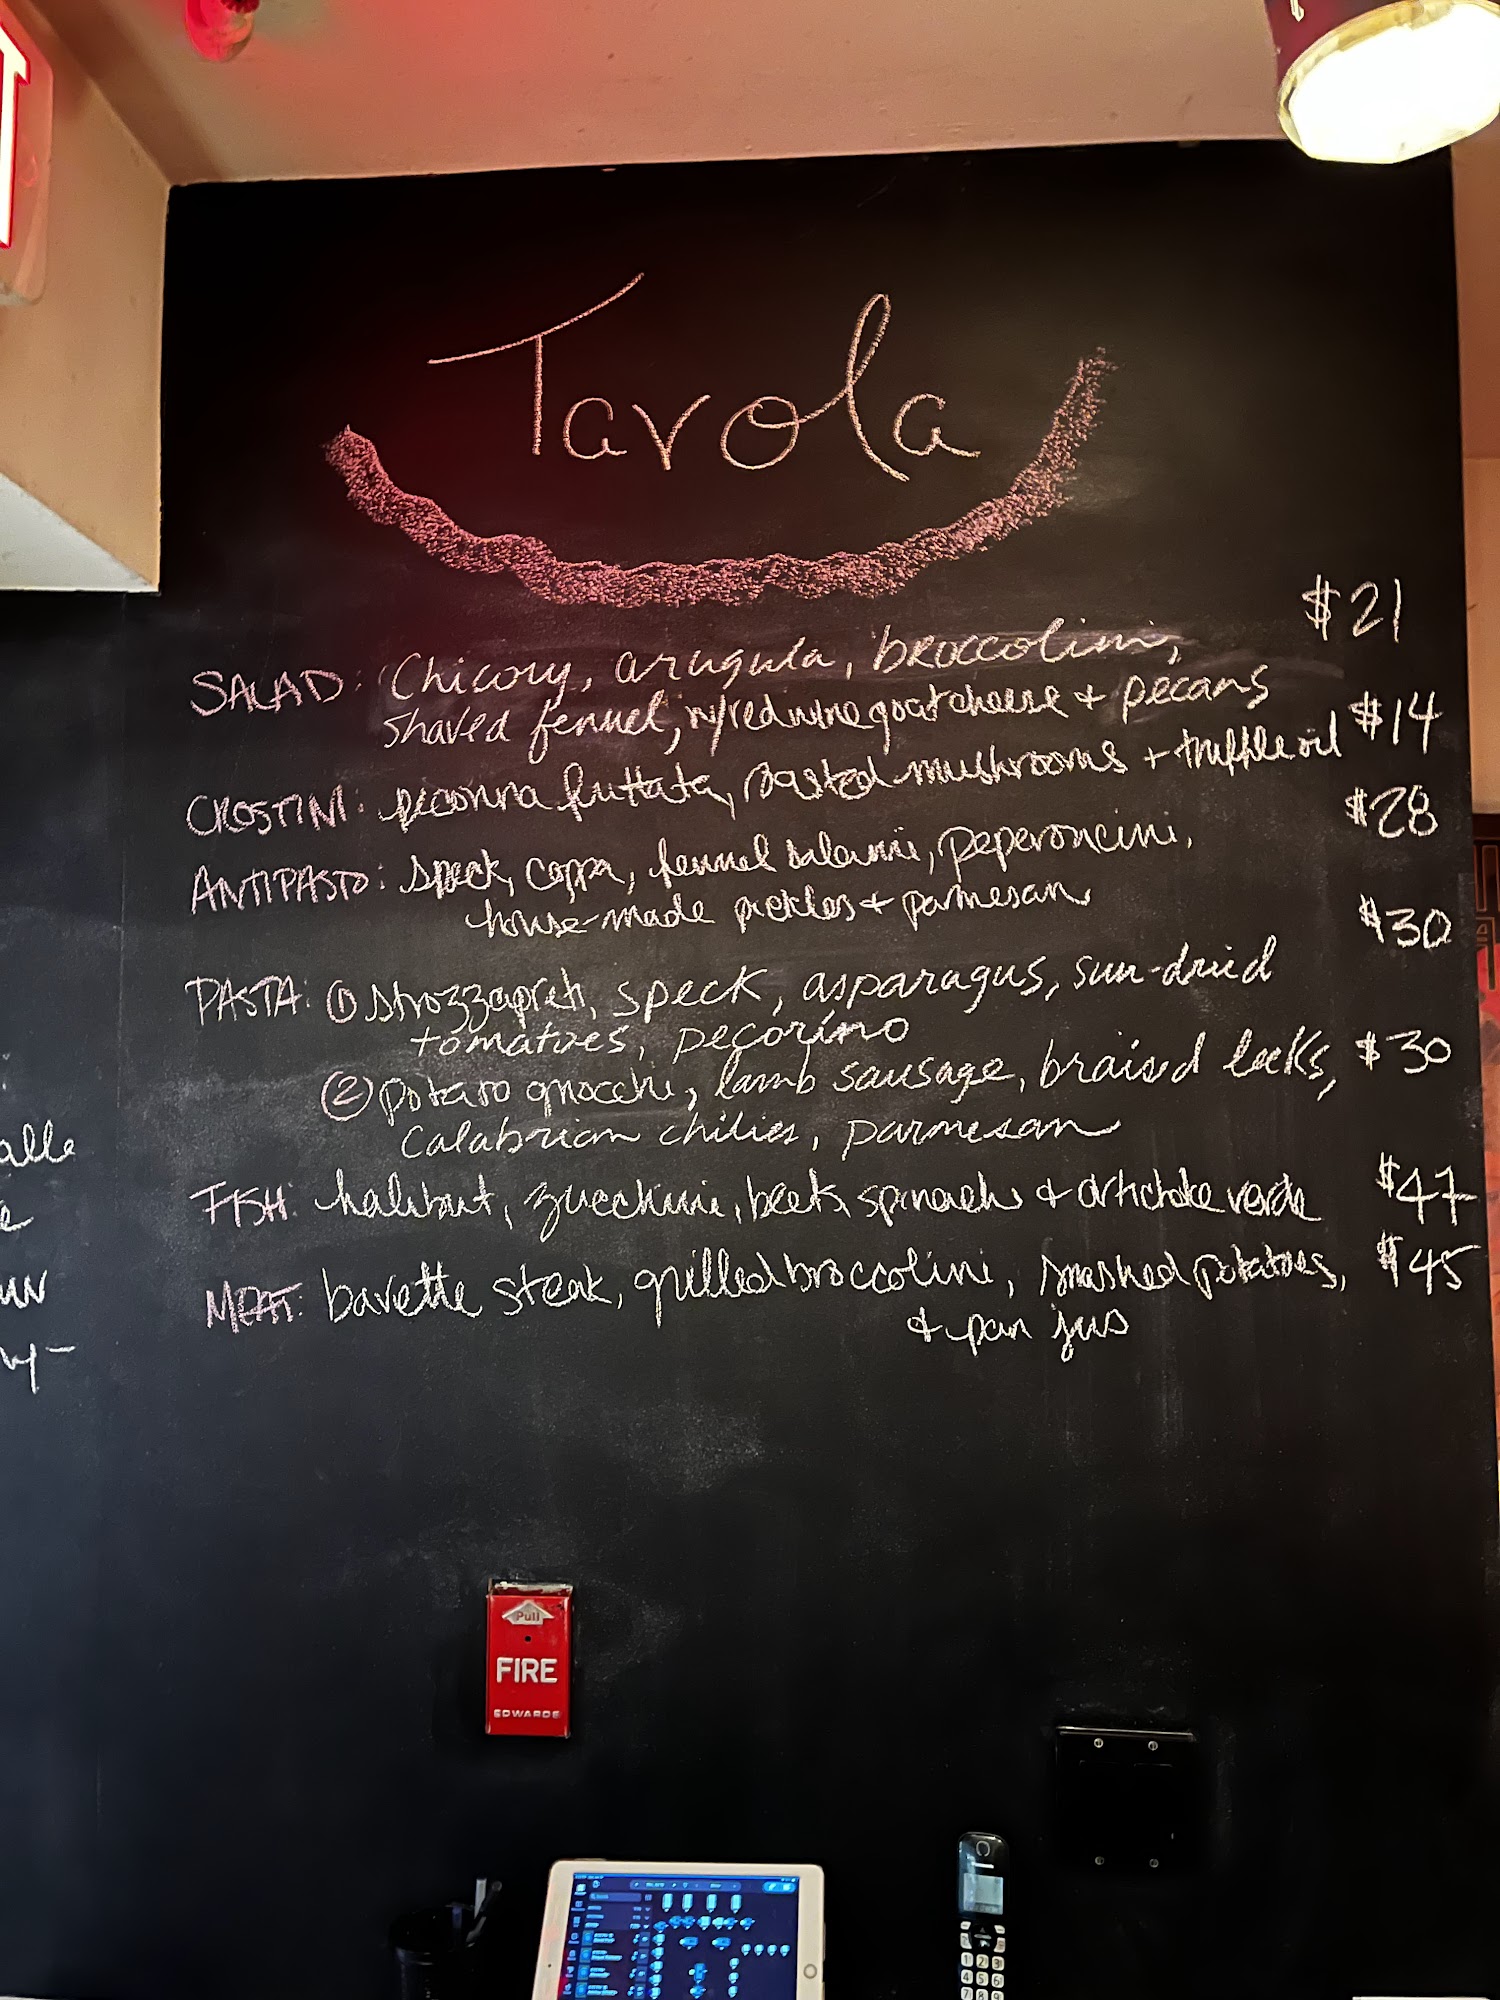 T
Tavola
$21
SALAD: Chicory, arugula, broccolini,
shaved fennel, w/red wine goat cheese + pecans
$14
CROSTINI: pecorina fruttata, roasted mushrooms + truffle oil
$28
ANTIPASTO: speck, coppa, fennel salami, peperoncini,
house-made pickles + parmesan
$30
PASTA: ① strozzapreti, speck, asparagus, sun-dried
tomatoes, pecorino
② potato gnocchi, lamb sausage, braised leeks, $30
Calabrian chilies, parmesan
FISH: halibut, zucchini, beets, spinach + artichoke verde $47
MEAT: bavette steak, grilled broccolini, smashed potatoes, $45
+ pan jus
alle
Pull
FIRE
EDWARDS